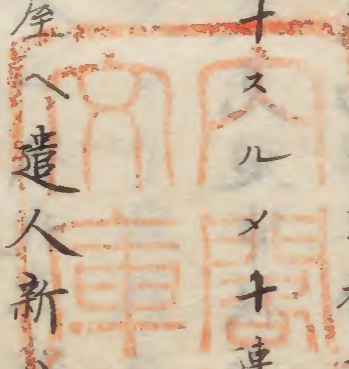 十スルメ十連
屋へ遣人新
内閣文庫